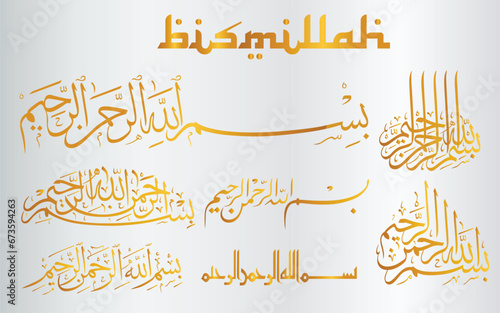 bismillah
بِسْمِ اللَّهِ الرَّحْمَٰنِ الرَّحِيمِ
بسم الله الرحمن الرحيم
بسم الله الرحمن الرحيم
بسم الله الرحمن الرحيم
بسم الله الرحمن الرحيم
بسم الله الرحمن الرحيم
بسم الله الرحمن الرحيم
بسم الله الرحمن الرحيم
Adobe Stock | #673594263